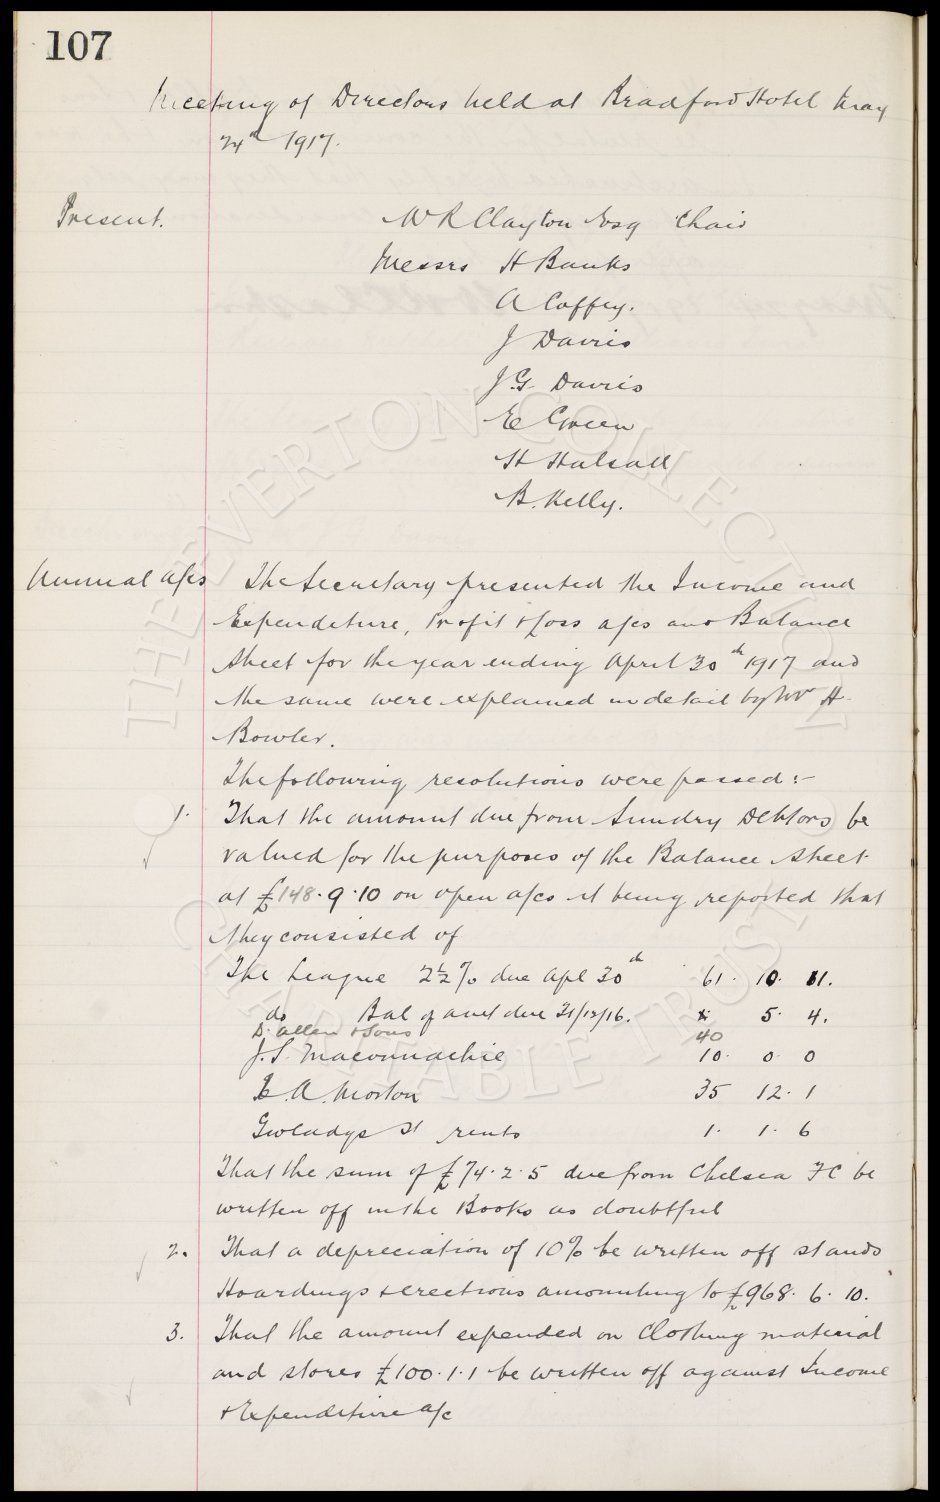 107
Meeting of Directors held at Bradford Hotel May
24th 1917.
Present. W R Clayton Esq Chair
Messrs H Banks
A Coffey.
J Davies
J.G. Davies
E Green
H Halsall
B. Kelly.
Annual a/cs The Secretary presented the Income and
Expenditure, Profit & Loss a/cs and Balance
Sheet for the year ending April 30th 1917 and
the same were explained in detail by Mr H
Bowler.
The following resolutions were passed:-
1. That the amount due from Sundry Debtors be
valued for the purposes of the Balance Sheet
at £148.9.10 on open a/cs it being reported that
they consisted of
The League 2½% due Apl 30th 61. 10. 11.
do Bal of amt due 31/12/16. 5. 4.
D. Allen & Sons 40
J.S. Maconnachie 10. 0. 0
A. Morton 35 12. 1
Gwladys St rents 1. 1. 6
That the sum of £74.2.5 due from Chelsea FC be
written off in the Books as doubtful
2. That a depreciation of 10% be written off stands
Hoardings & erections amounting to £968. 6. 10.
3. That the amount expended on Clothing material
and stores £100.1.1 be written off against Income
& Expenditure a/c
THE EVERTON COLLECTION
CHARITABLE TRUST